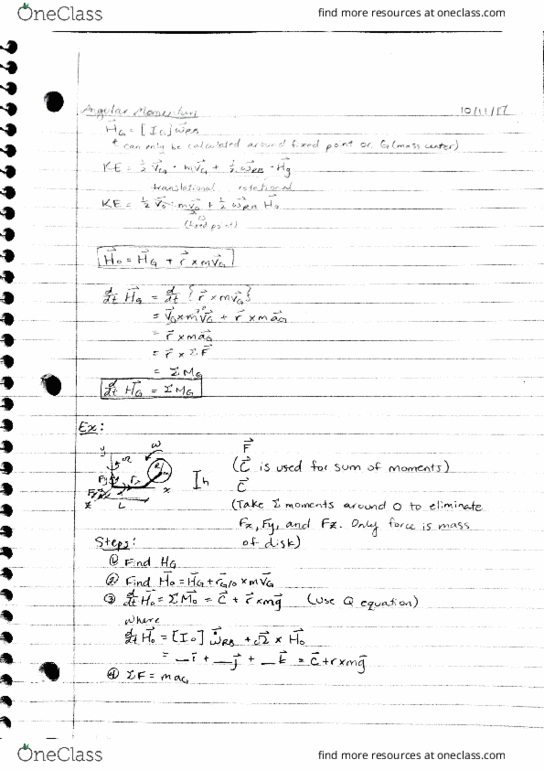 OneClass
find more resources at oneclass.com
Angular Momentum
10/11/17
H⃗G = [IG] ω⃗RB
* can only be calculated around fixed point or G (mass center)
KE = ½ V⃗G · mV⃗G + ½ ω⃗RB · H⃗G
translational rotational
KE = ½ V⃗O · mV⃗O + ½ ω⃗RB H⃗O
(fixed point)
H⃗O = H⃗G + r⃗ × mV⃗G
d/dt H⃗G = d/dt { r⃗ × mV⃗G }
= V⃗G × mV⃗G + r⃗ × ma⃗G
= r⃗ × ma⃗G
= r⃗ × ΣF⃗
= ΣMG
d/dt H⃗G = ΣMG
Ex:
y
Ω
ω
x
z
L
h
F⃗
(C⃗ is used for sum of moments)
C⃗
(Take Σ moments around O to eliminate
Fx, Fy, and Fz. Only force is mass
of disk)
Steps:
① Find HG
② Find H⃗O = H⃗G + r⃗G/O × mV⃗G
③ d/dt H⃗O = ΣM⃗O = C⃗ + r⃗ × mg⃗ (use Q equation)
where
d/dt H⃗O = [IO] ω̇RB + Ω⃗ × H⃗O
= __i + __j + __k = C⃗ + r × mg⃗
④ ΣF = maG
OneClass
find more resources at oneclass.com